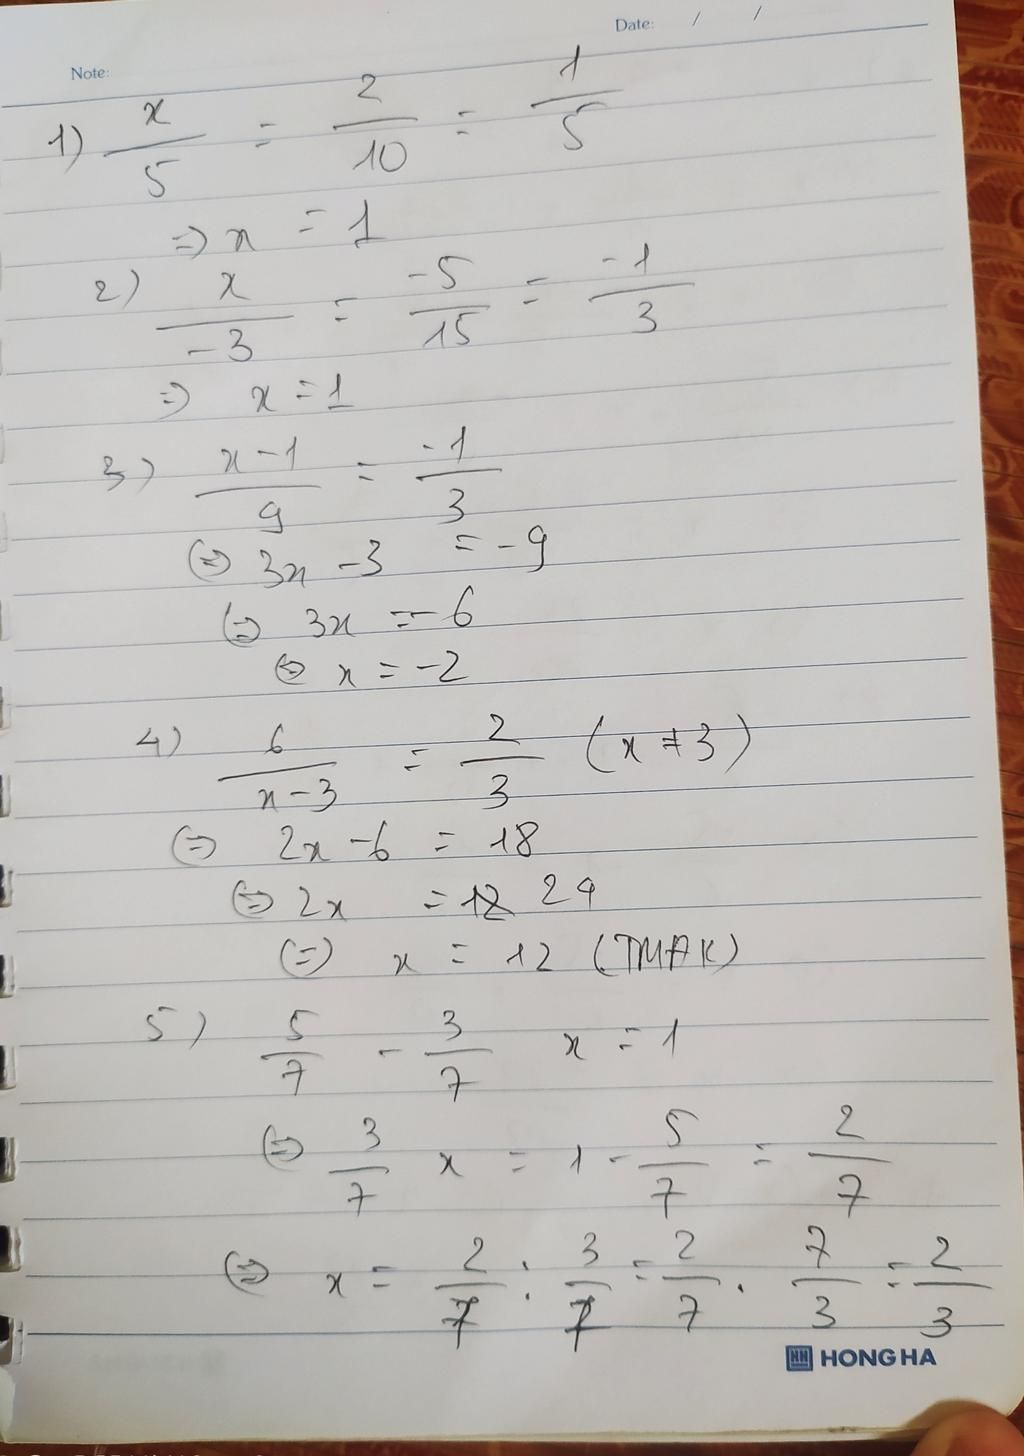 Date: / /
Note:
1) x/5 = 2/10 = 1/5
=> x = 1
2) x/-3 = -5/15 = -1/3
=> x = 1
3) x-1/9 = -1/3
<=> 3x - 3 = -9
<=> 3x = -6
<=> x = -2
4) 6/x-3 = 2/3 (x ≠ 3)
<=> 2x - 6 = 18
<=> 2x = 12 24
<=> x = 12 (TMĐK)
5) 5/7 - 3/7 x = 1
<=> 3/7 x = 1 - 5/7 = 2/7
<=> x = 2/7 : 3/7 = 2/7 . 7/3 = 2/3
HH HONG HA